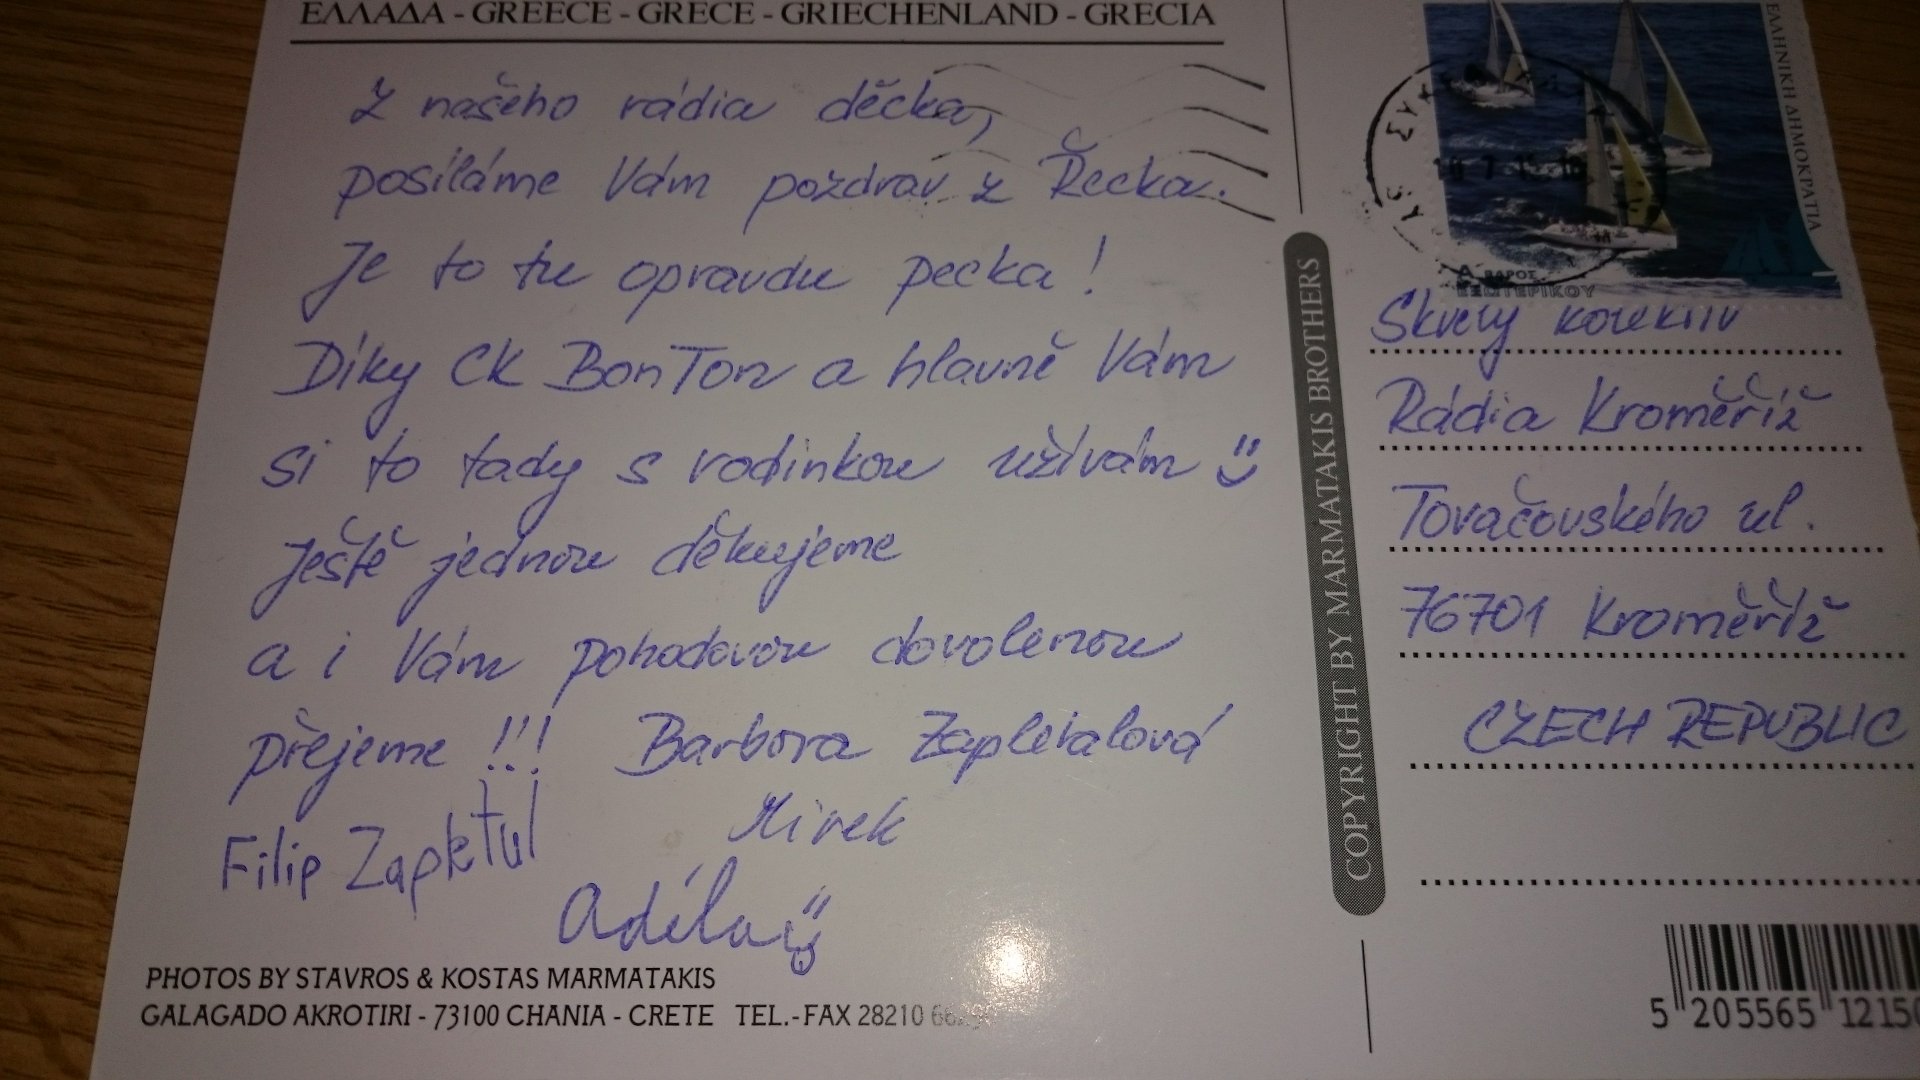 ΕΛΛΑΔΑ - GREECE - GRECE - GRIECHENLAND - GRECIA
Z našeho rádia děcka,
posíláme Vám pozdrav z Řecka.
Je to tu opravdu pecka!
Díky CK BonTon a hlavně Vám
si to tady s rodinkou užívám
Ještě jednou děkujeme
a i Vám pohodovou dovolenou
přejeme !!! Barbora Zapletalová
Mirek
Filip Zapletal
Adéla
PHOTOS BY STAVROS & KOSTAS MARMATAKIS
GALAGADO AKROTIRI - 73100 CHANIA - CRETE TEL.-FAX 28210
COPYRIGHT BY MARMATAKIS BROTHERS
ΕΛΛΗΝΙΚΗ ΔΗΜΟΚΡΑΤΙΑ
Α ΒΑΡΟΣ
ΕΣΩΤΕΡΙΚΟΥ
Skvělý kolektiv
Rádia Kroměříž
Tovačovského ul.
76701 Kroměříž
CZECH REPUBLIC
5 205565 12150